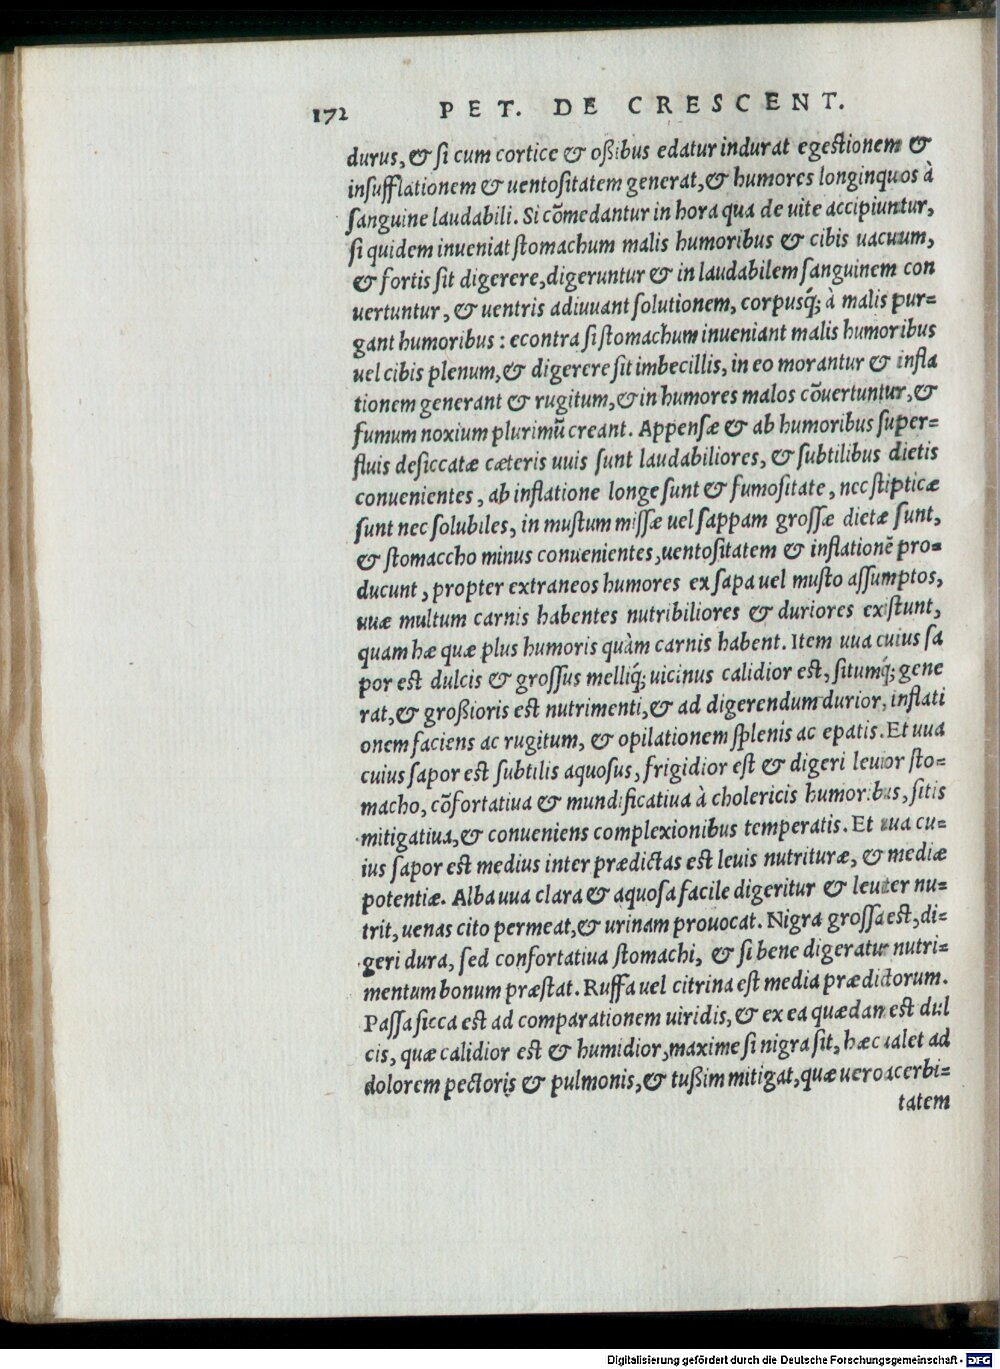 172 PET. DE CRESCENT.
durus, & si cum cortice & oßibus edatur indurat egestionem &
insufflationem & uentositatem generat, & humores longinquos à
sanguine laudabili. Si cõmedantur in hora qua de uite accipiuntur,
si quidem inueniat stomachum malis humoribus & cibis uacuum,
& fortis sit digerere, digeruntur & in laudabilem sanguinem con
uertuntur, & uentris adiuuant solutionem, corpusq́; à malis pur=
gant humoribus : econtra si stomachum inueniant malis humoribus
uel cibis plenum, & digerere sit imbecillis, in eo morantur & infla
tionem generant & rugitum, & in humores malos cõuertuntur, &
fumum noxium plurimũ creant. Appensæ & ab humoribus super=
fluis desiccatæ cæteris uuis sunt laudabiliores, & subtilibus dietis
conuenientes, ab inflatione longe sunt & fumositate, nec stipticæ
sunt nec solubiles, in mustum missæ uel sappam grossæ dietæ sunt,
& stomaccho minus conuenientes, uentositatem & inflationẽ pro=
ducunt, propter extraneos humores ex sapa uel musto assumptos,
uuæ multum carnis habentes nutribiliores & duriores existunt,
quam hæ quæ plus humoris quàm carnis habent. Item uua cuius sa
por est dulcis & grossus melliq́; uicinus calidior est, situmq́; gene
rat, & großioris est nutrimenti, & ad digerendum durior, inflati
onem faciens ac rugitum, & opilationem splenis ac epatis. Et uua
cuius sapor est subtilis aquosus, frigidior est & digeri leuior sto=
macho, cõfortatiua & mundificatiua à cholericis humoribus, sitis
mitigatiua, & conueniens complexionibus temperatis. Et uua cu=
ius sapor est medius inter prædictas est leuis nutrituræ, & mediæ
potentiæ. Alba uua clara & aquosa facile digeritur & leuiter nu=
trit, uenas cito permeat, & urinam prouocat. Nigra grossa est, di=
geri dura, sed confortatiua stomachi, & si bene digeratur nutri=
mentum bonum præstat. Ruffa uel citrina est media prædictorum.
Passa sicca est ad comparationem uiridis, & ex ea quædam est dul
cis, quæ calidior est & humidior, maxime si nigra sit, hæc ualet ad
dolorem pectoris & pulmonis, & tußim mitigat, quæ uero acerbi=
tatem
Digitalisierung gefördert durch die Deutsche Forschungsgemeinschaft - DFG